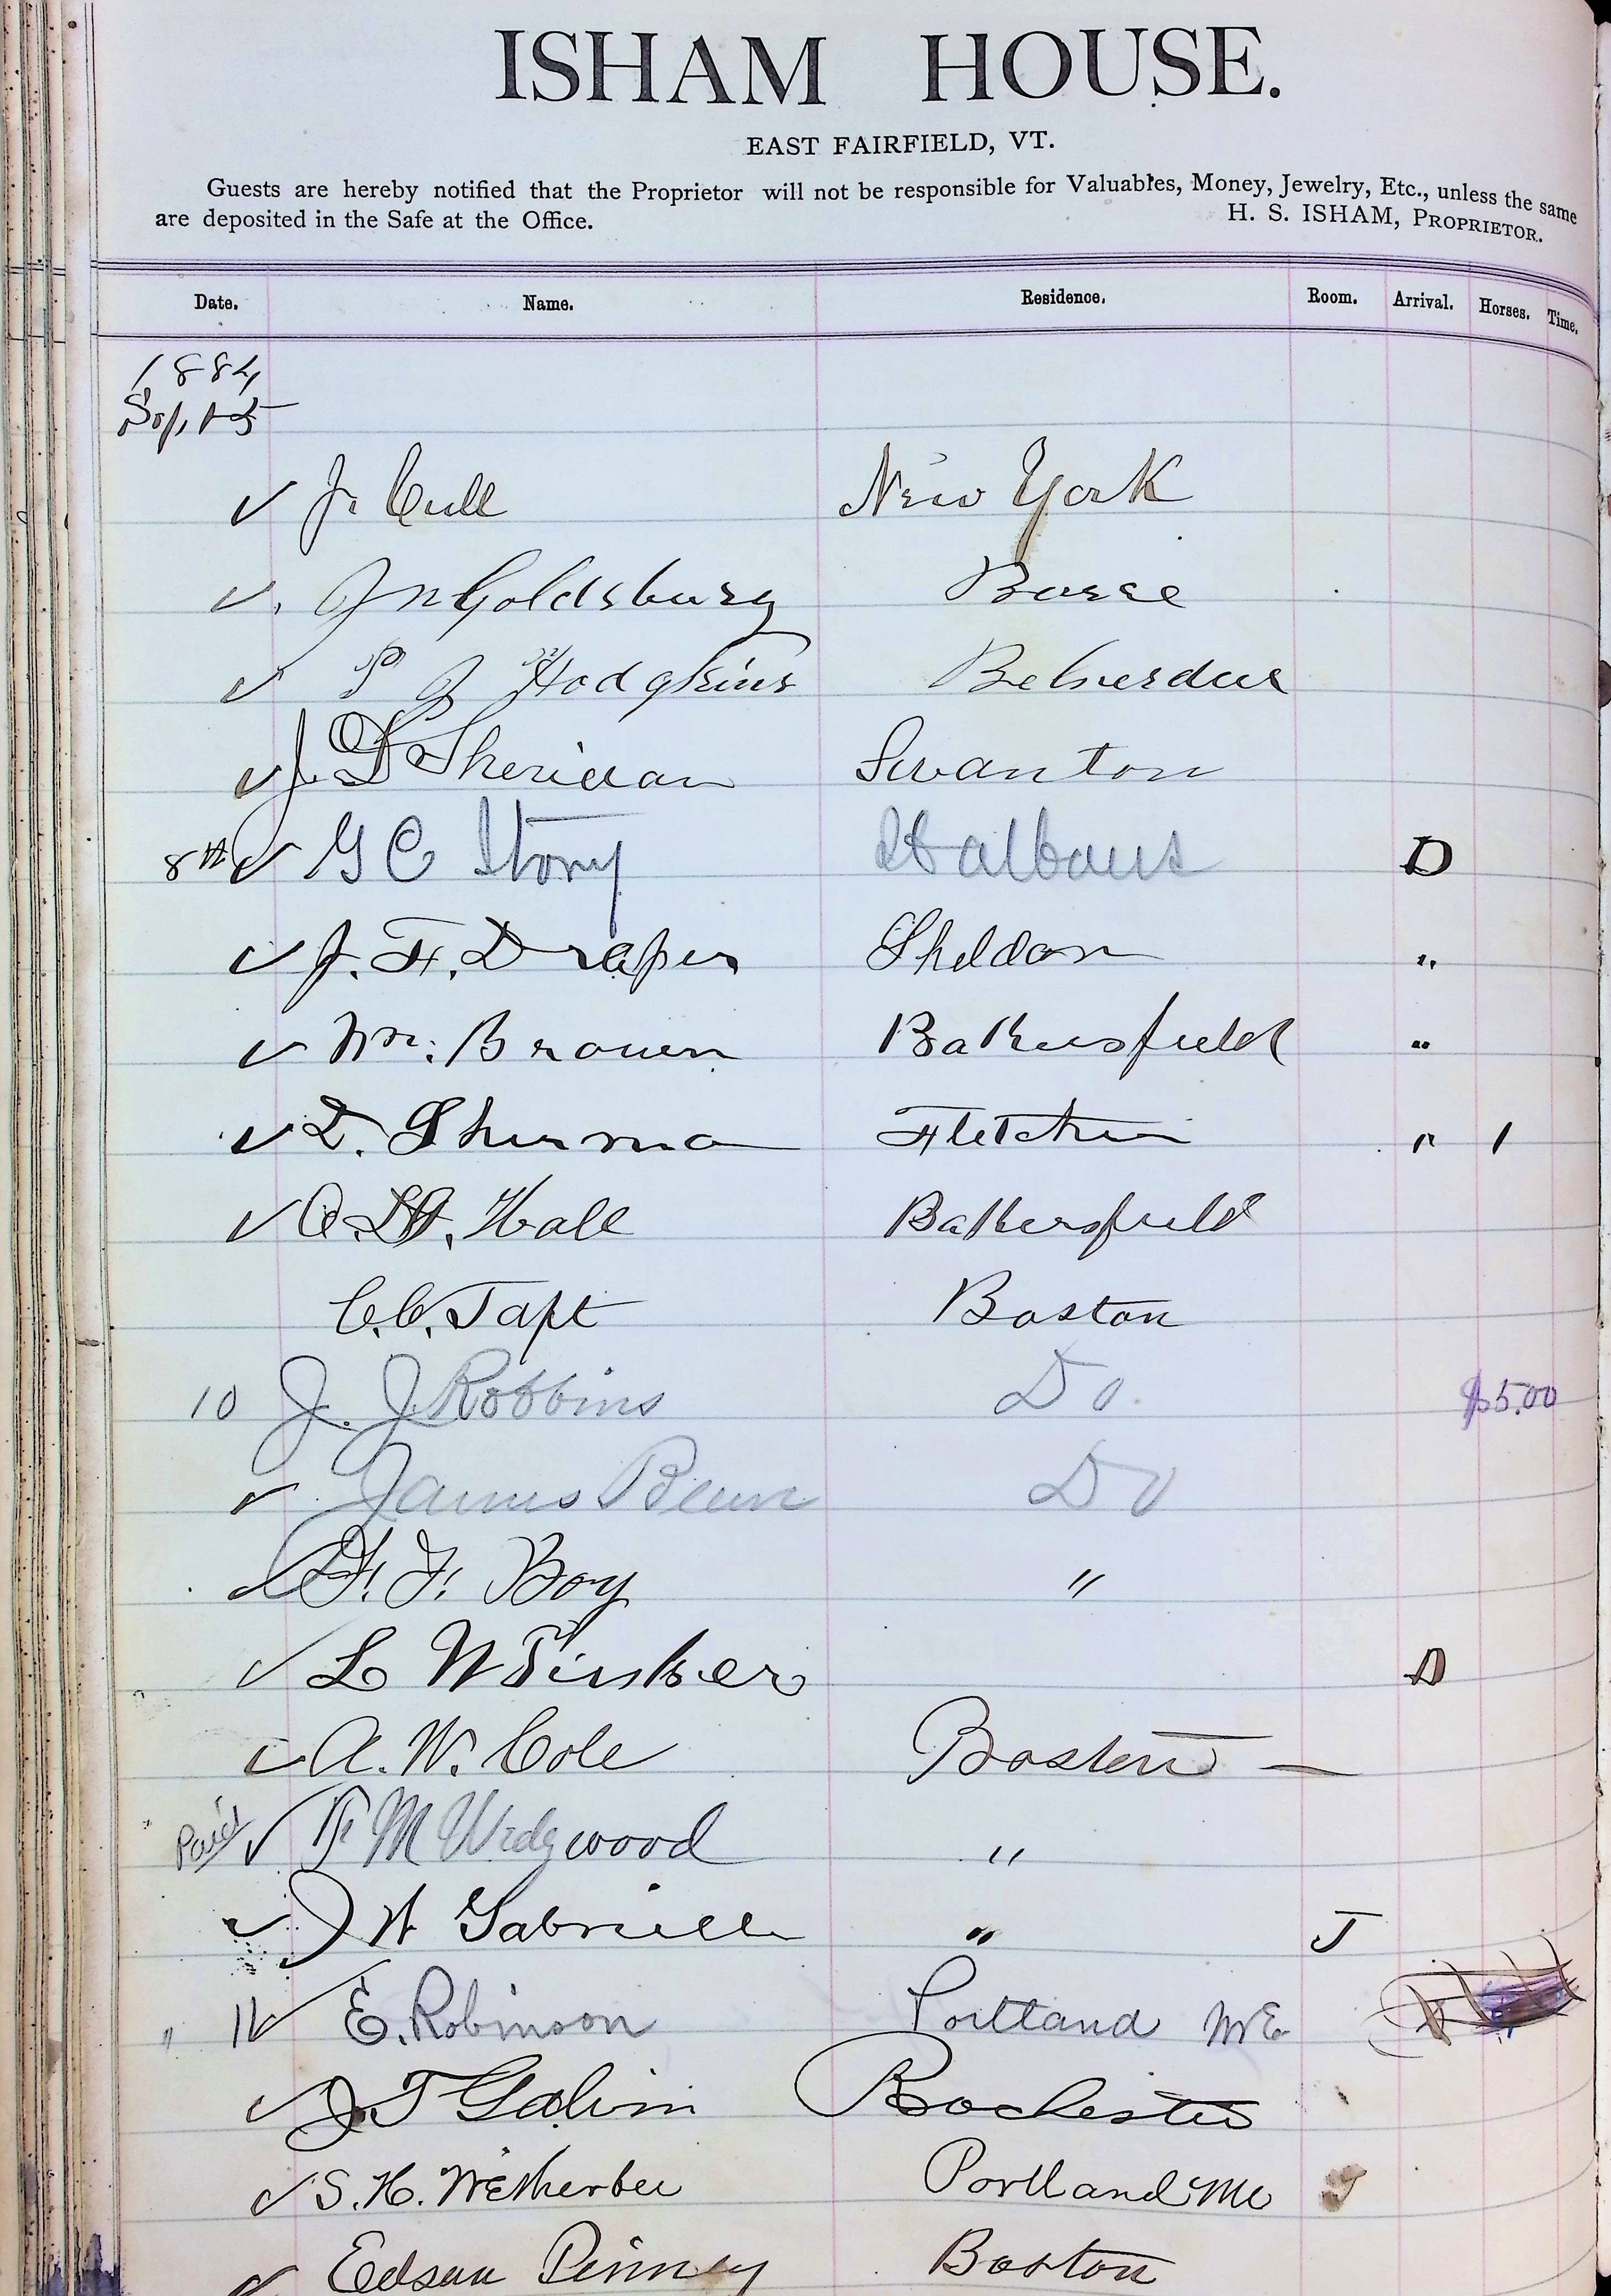 ISHAM HOUSE.
EAST FAIRFIELD, VT.
Guests are hereby notified that the Proprietor will not be responsible for Valuables, Money, Jewelry, Etc., unless the same
are deposited in the Safe at the Office. H. S. ISHAM, PROPRIETOR.
Date. Name. Residence. Room. Arrival. Horses. Time.
1884
Sept 5
✓ J. Cull New York
✓ J N Goldsbury Barre
✓ P J Hodgkins Belverdere
✓ J. Sheridan Swanton
8th ✓ G C Story St Albans D
✓ J. H. Draper Sheldon "
✓ Wm. Brown Bakersfield "
✓ D. Shurman Fletcher " 1
✓ Hall Bakersfield
C. C. Taft Boston
10 J. J. Robbins Do. $5.00
✓ James Do
✓ F. F. Boy "
✓ L W Tinker D
✓ A. W. Cole Boston —
Paid ✓ M Wedgwood "
✓ J H Gabrielle " J
" 11 ✓ E. Robinson Portland ME
✓ J T Galvin Rochester
✓ S. H. Wetherbee Portland Me J
✓ Edson Pinney Boston